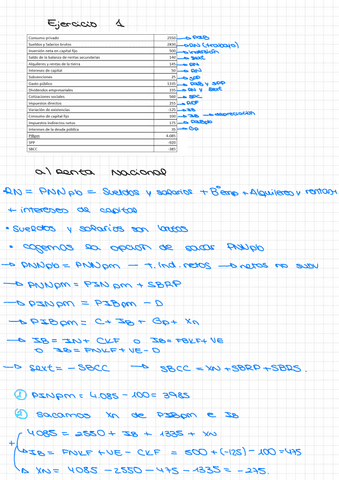 Ejercicio 1
Consumo privado 2550 → PIB
Sueldos y Salarios brutos 2820 → RN (trabajo)
Inversión neta en capital fijo 500 → inversión
Saldo de la balanza de rentas secundarias
Alquileres y rentas de la tierra 145
Intereses de capital 50 → RN
Subvenciones 25
Gasto público 1335
Dividendos empresariales
Cotizaciones sociales 560
Impuestos directos 255
Variación de existencias -125
Consumo de capital fijo 100
Impuestos indirectos netos 175
Intereses de la deuda pública
PIBpm 4.085
SPP -920
SBCC -385
a) Renta Nacional
RN = PNNpb = Sueldos y salarios + Bº emp + Alquileres y rentas
+ intereses de capital
• Sueldos y salarios son brutos
• Cogemos la opción de sacar PNNpb
→ PNNpb = PNNpm - T. ind. netos → netos no subv
→ PNNpm = PINpm + SBRP
→ PINpm = PIBpm - D
→ PIBpm = C + IB + Gp + Xn
→ IB = IN + CKF o IB = FBKF + VE
o IB = FNKF + VE - D
→ Sext = - SBCC → SBCC = XN + SBRP + SBRS.
① PINpm = 4.085 - 100 = 3985
② Sacamos Xn de PIBpm e IB
4085 = 2550 + IB + 1335 + XN
IB = FNKF + VE - CKF = 500 + (-125) - 100 = 475
XN = 4085 - 2550 - 475 - 1335 = -275.